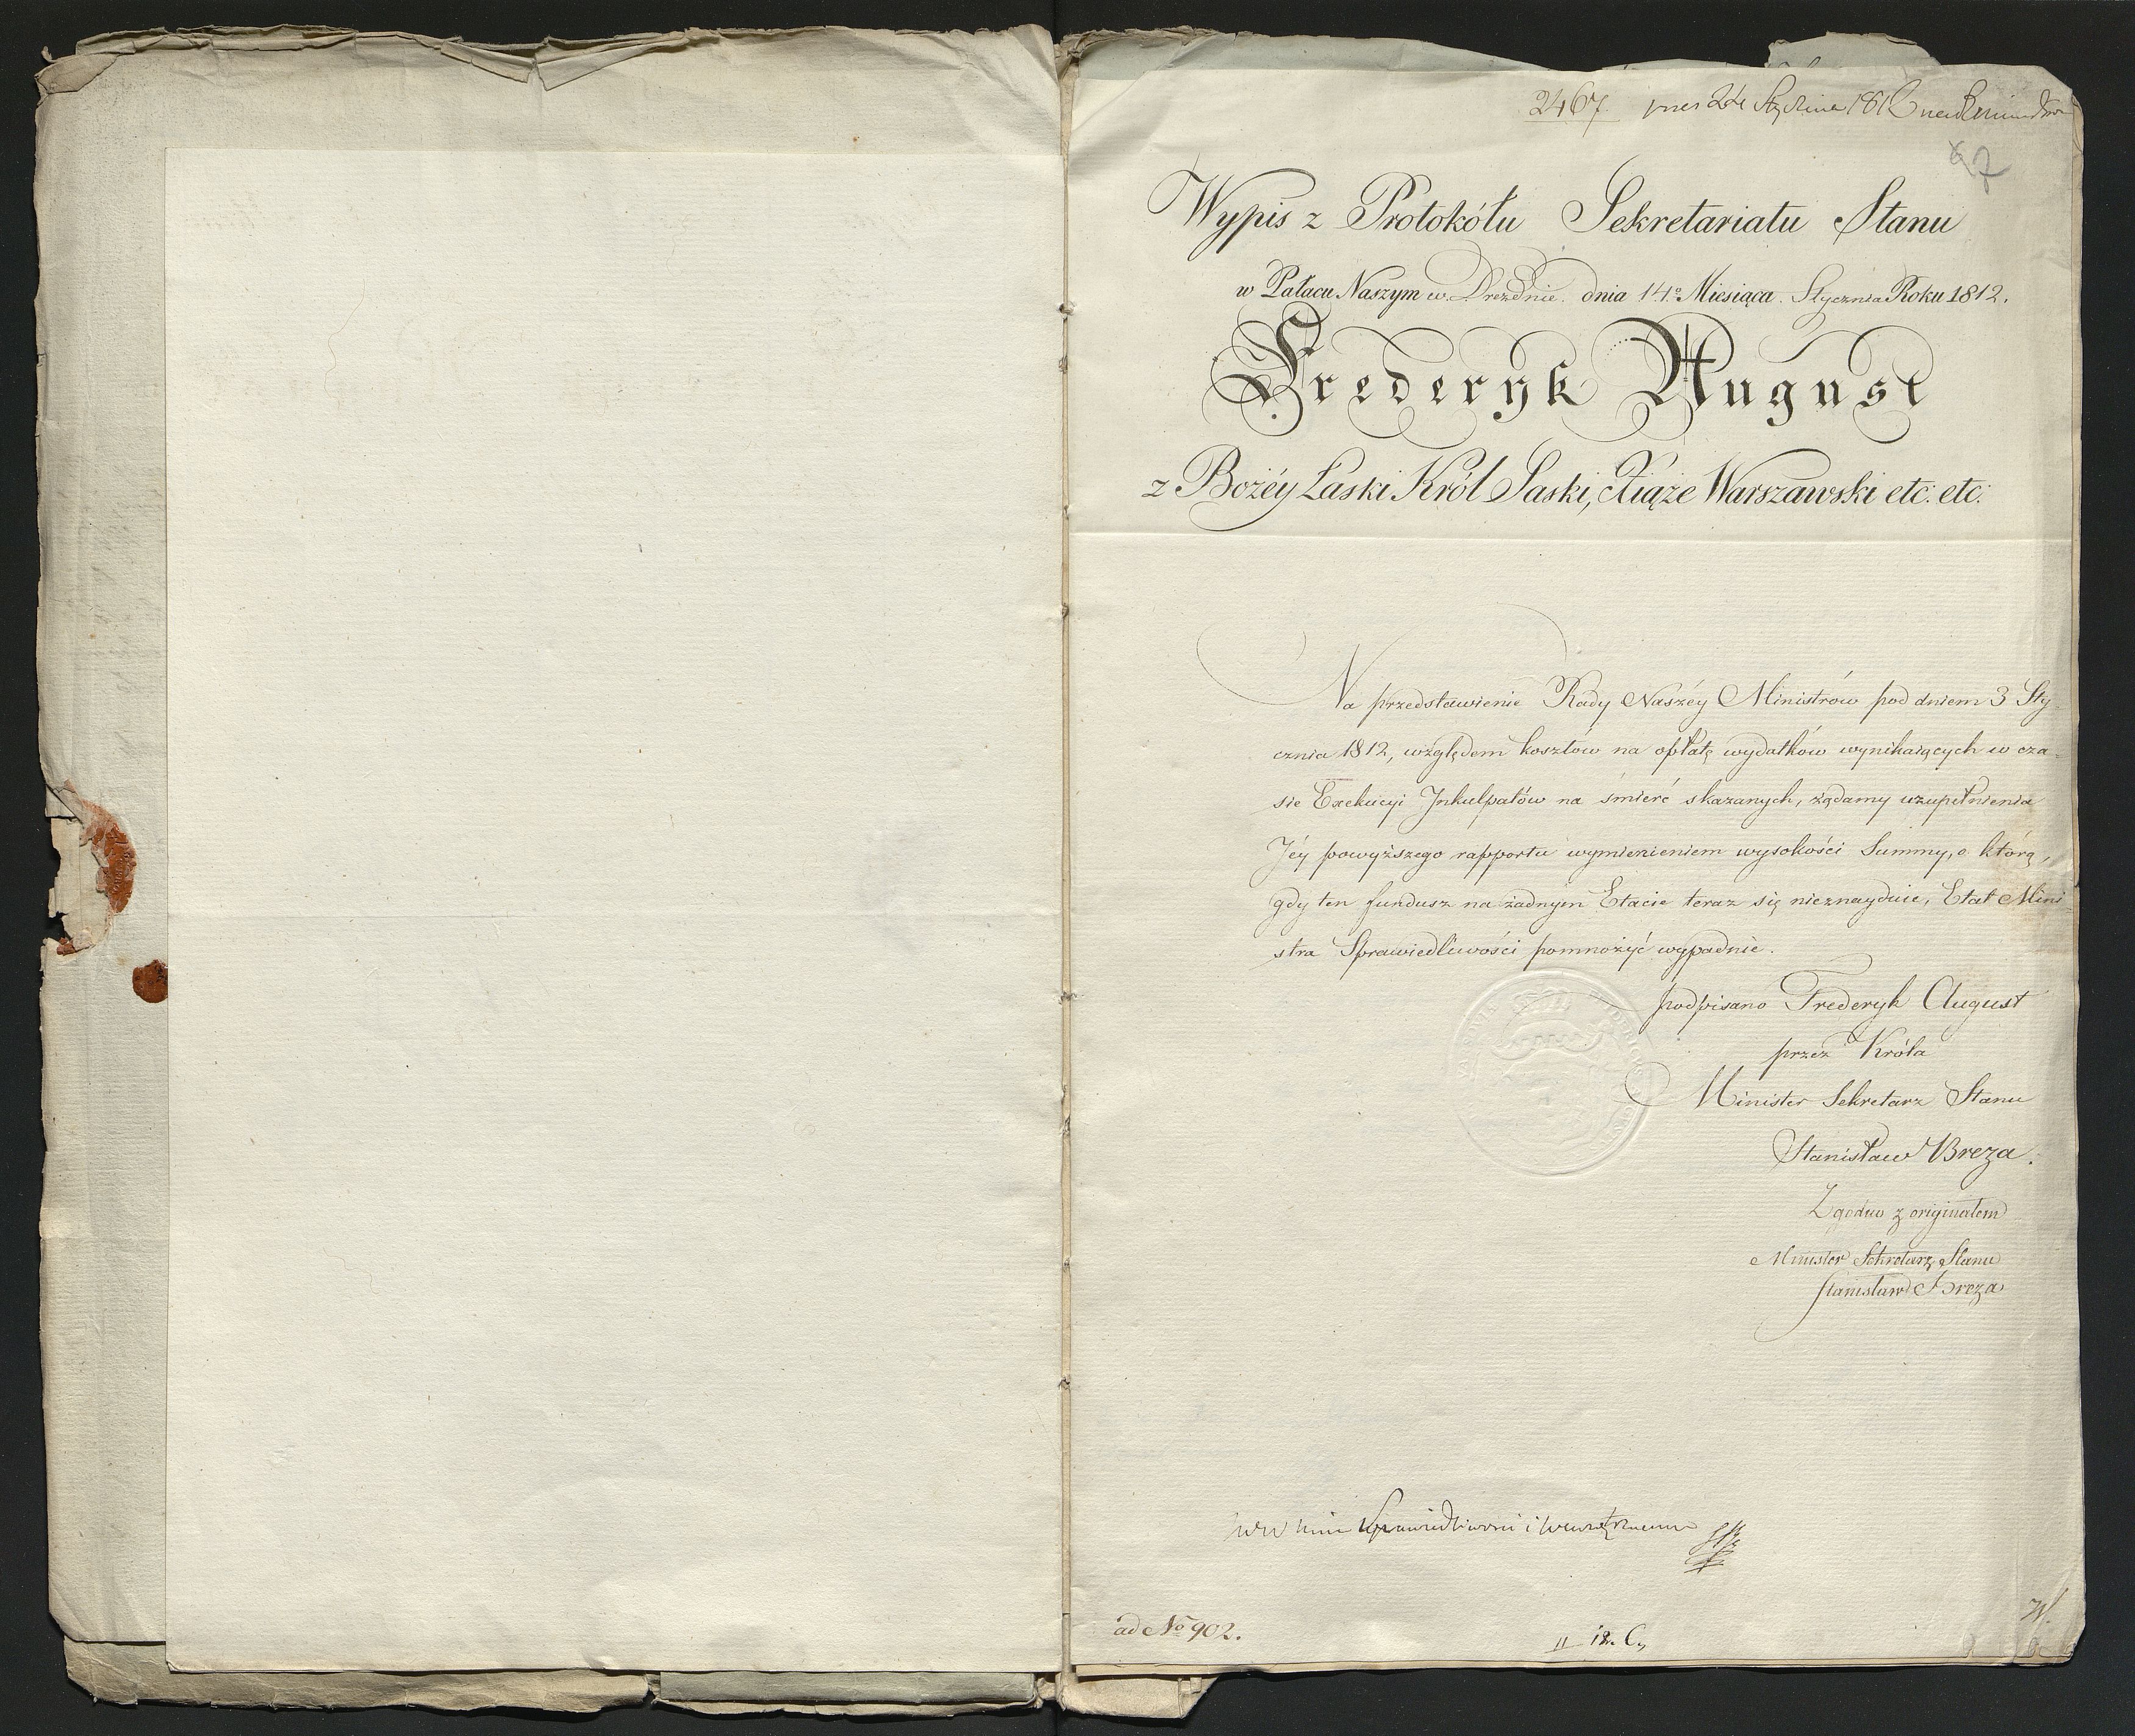 2467. 24 Stycznia 1812
67
Wypis z Protokółu Sekretariatu Stanu
w Pałacu Naszym w Dreźdnie. dnia 14º Miesiąca Stycznia Roku 1812.
Frederyk August
z Bożéy Łaski Król Saski, Xiąże Warszawski etc: etc:
Na przedstawienie Rady Naszéy Ministrów pod dniem 3 Sty-
cznia 1812, względem kosztów na opłatę wydatków wynikaiących w cza-
sie Exekucyi Inkulpatów na śmierć skazanych, żądamy uzupełnienia
Jéy powyższego rapportu wymienieniem wysokości Summy, o którą,
gdy ten fundusz na żadnym Etacie teraz się nieznayduie, Etat Mini-
stra Sprawiedliwości pomnożyć wypadnie.
podpisano Frederyk August
przez Króla
Minister Sekretarz Stanu
Stanisław Breza.
Zgodno z originałem
Minister Sekretarz Stanu
Stanisław Breza
Sprawiedliwości i
ad No 902.
W.